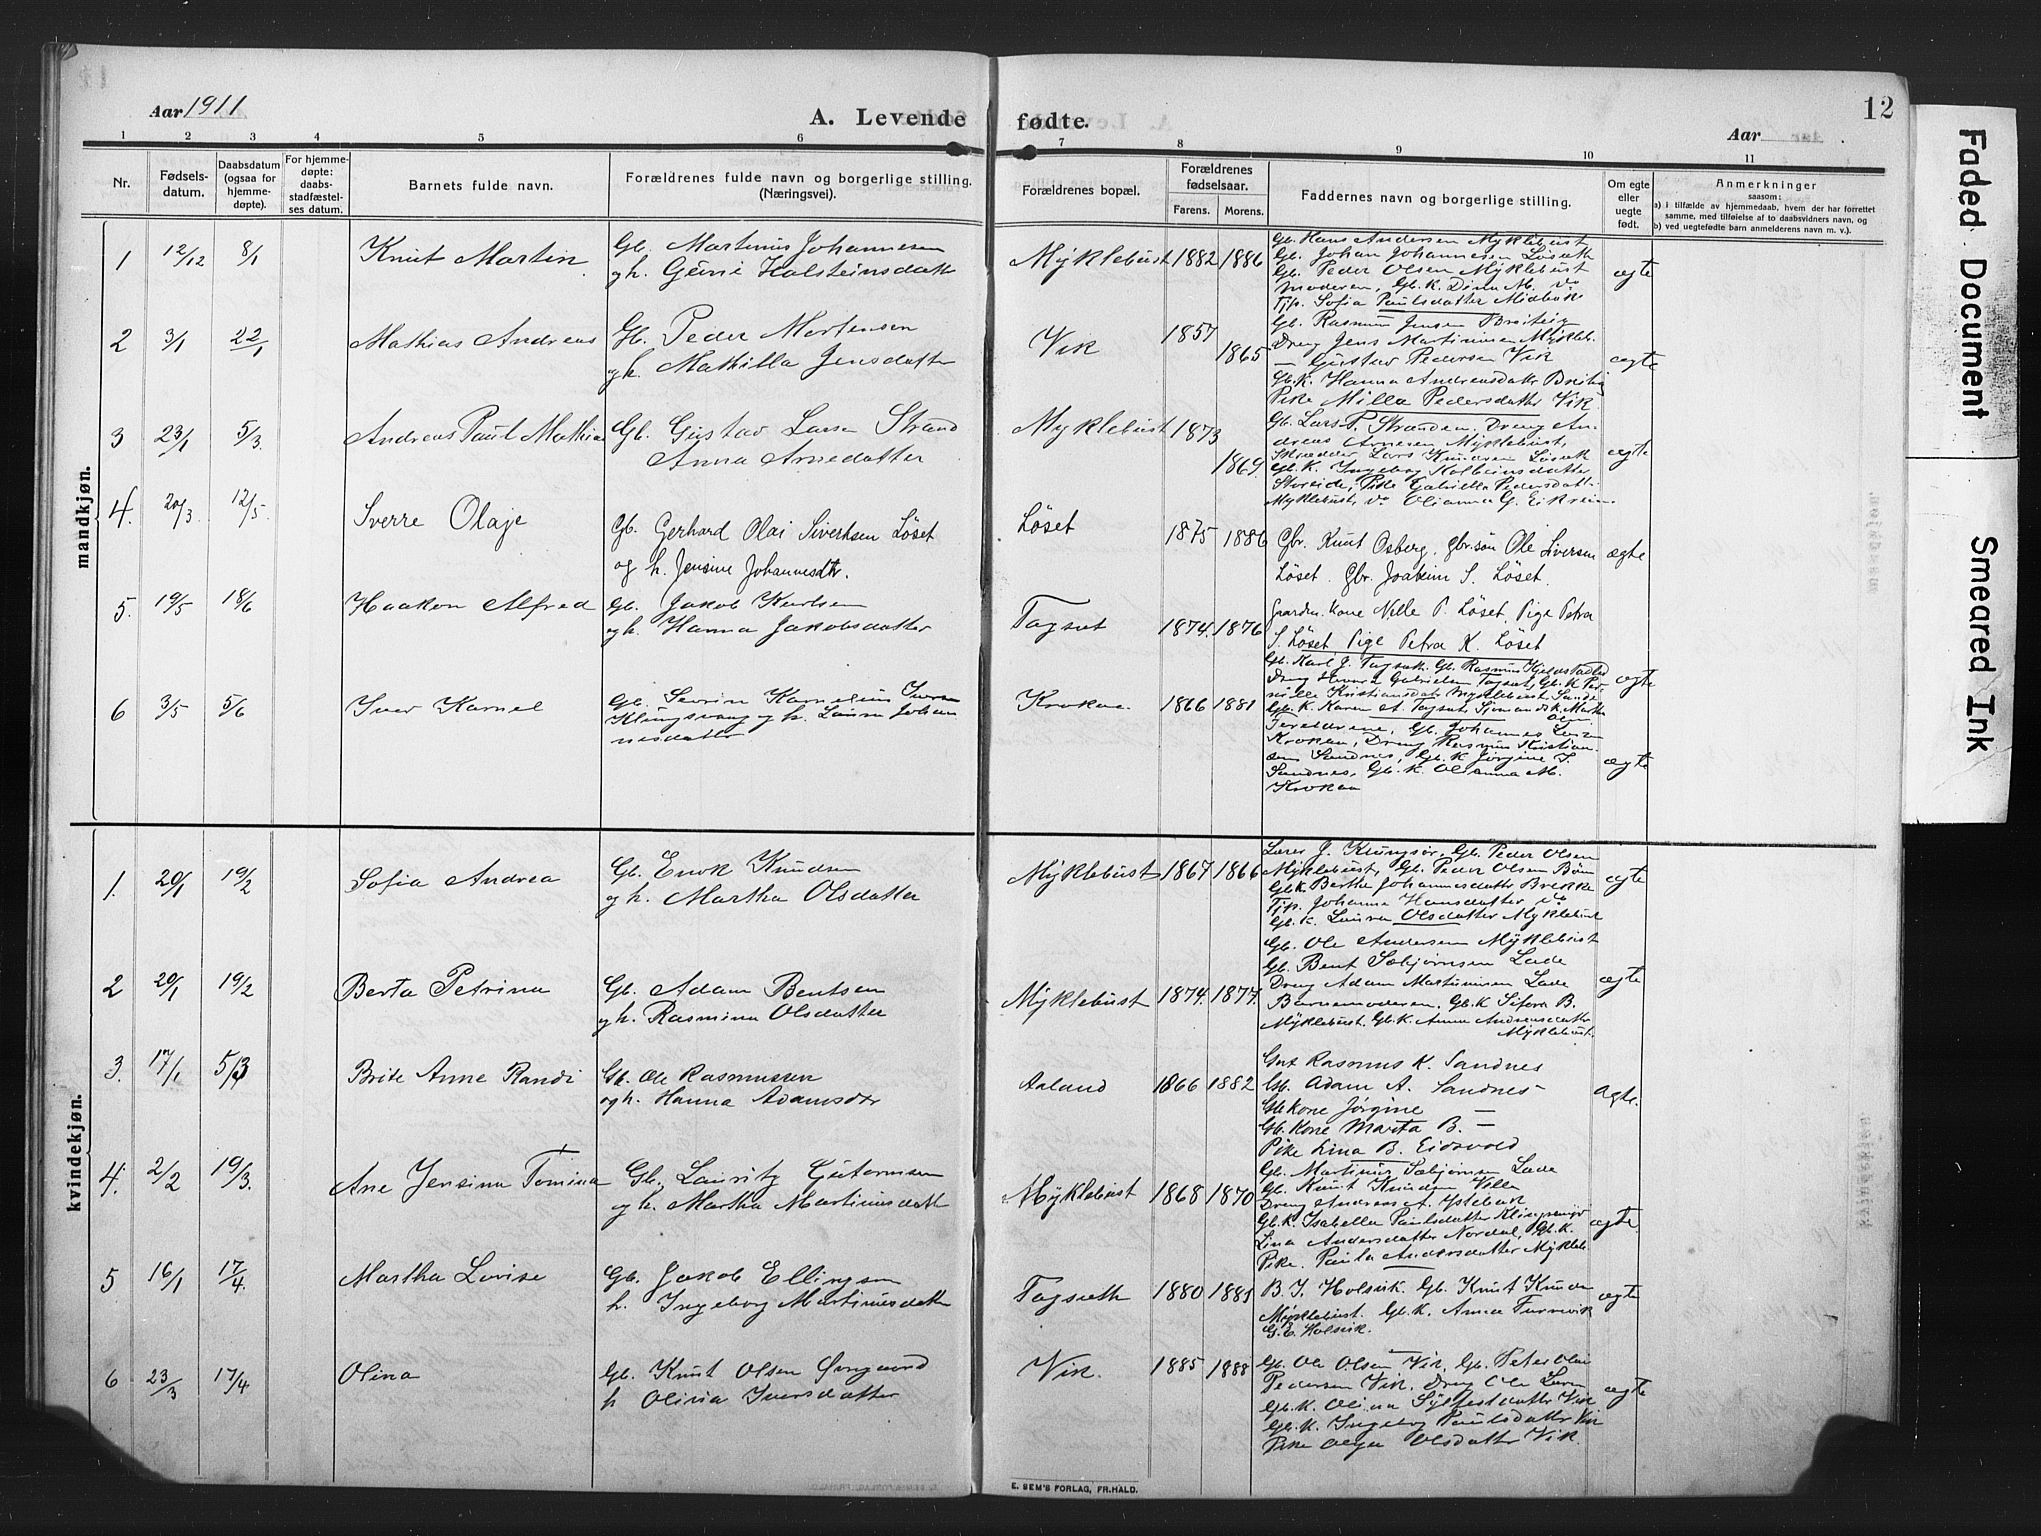 Aar 1911
A. Levende fødte.
Aar
12
1 2 3 4 5 6 7 8 9 10 11
Nr.
Fødsels-
datum.
Daabsdatum
(ogsaa for
hjemme-
døpte).
For hjemme-
døpte:
daabs-
stadfæstel-
ses datum.
Barnets fulde navn.
Forældrenes fulde navn og borgerlige stilling.
(Næringsvei).
Forældrenes bopæl.
Forældrenes
fødselsaar.
Farens. Morens.
Faddernes navn og borgerlige stilling.
Om egte
eller
uegte
født.
Anmerkninger
saasom:
a) i tilfælde av hjemmedaab, hvem der har forrettet
samme, med tilføielse af to daabsvidners navn, og
b) ved uegtefødte barn anmelderens navn m. v.).
mandkjøn.
1 12/12 8/1 Knut Martin
Gb. Martinus Johannesen
gh. Holsteinsdatt
Myklebust 1882 1886
Gb. Hans Andersen Myklebust
Gb. Johan Johannesen Løseth
Gb. Peder Olsen Myklebust
moderen, Gb. K. Dina M. do
Tjp. Sofia Paulsdatter Midbøe
egte
2 3/1 22/1 Mathias Andreas
Gb. Peder Mortensen
gh. Mathilla Jensdatter
Vik 1857 1865
Gb. Rasmus Jensen Breiteig
Dreng Jens Martinusen Mykleb.
— Gustav Pedersen Vik
Gb.K. Hanna Andreasdatr Breiteig
Pike Milla Pedersdatter Vik.
egte
3 23/1 5/3 Andreas Paul Mathias
Gb. Gustav Larsen Strand
Anna Arnedatter
Myklebust 1873 1869
Gb. Lars P. Stranden, Dreng An-
dreas Arnesen Myklebust,
Skrædder Lars Knudsen Løseth
Gb. K. Ingeborg Kolbeinsdatter
Streide, Pike Gabriella Pedersdatt.
Myklebust, do Olianna G. Eikrem
egte
4. 20/3 12/5 Sverre Olaje
Gb. Gerhard Olai Sivertsen Løset
og h. Jensine Johannesdtr.
Løset 1875 1886
Gbr. Knut Osberg, gbr.søn Ole Siversen
Løset. Gbr Joakim S. Løset.
Gaardm. kone Nille P. Løset, Pige Petra
S. Løset, Pige Petra K. Løset
ægte
5. 19/5 18/6 Haakon Alfred
Gb. Jakob Karlsen
gh. Hanna Jakobsdatter
Tagset 1874. 1876
Gb. Karl J. Tagseth. Gb. Rasmus Kjelstadli
Dreng Gabrielsen Tagset, Gb. K. Per-
nille Kristiansdatr Myklebust
Gb. K. Karen A. Tagset,
egte
6 3/5 5/6 Iver Karnel
Gb. Severin Karnelius Iversen
Klungsvaag gh. Laura Johan
nesdatter
Krokaa 1866 1881
Sjømandsk. Martha
Forældrene, Gb. Johannes Larsen
Krokaa, Dreng Rasmus Kristian-
sen Sandnes, Gb. K Jørgine I.
Sandnes, Gb. K. Olianna M.
Krokaa
ægte
kvindekjøn.
1. 20/1 19/2 Sofia Andrea
Gb. Enok Knudsen
gh. Martha Olsdatter
Myklebust 1867 1866
Lærer J. Klungsør, Gb. Peder Olsen
Myklebust, Gb. Peder Olsen Bøen
Gb.K. Berthe Johannesdatter Brekke
Tjp. Johanna Hansdatter do
Gb. K. Laura Olsdatter Myklebust
egte
2 20/1 19/2 Berta Petrina
Gb. Adam Bentsen
gh. Rasmina Olsdatter
Myklebust 1874. 1877.
Gb. Ole Andersen Myklebust
Gb. Bent Sæbjørnsen Lade
Dreng Adam Martinusen Lade
Barnemoderen, Gb. K Sefora B.
Myklebust. Gb. K. Anna Andreasdatter
Myklebust.
egte
3. 17/1 5/3 Brite Anne Randi
Gb. Ole Rasmussen
og h. Hanna Adamsdtr
Aaland 1866 1882
Gut Rasmus K. Sandnes
Gb. Adam A. Sandnes
Gb kone Jørgine —
Gb. kone Marta B. —
Pike Lina B. Eidsvold
ægte.
4. 2/2 19/3. Ane Jensina Tomina
Gb. Lauritz Guttormsen
gh. Martha Martinusdatt
Myklebust 1868 1870
Gb. Martinus Sæbjørnsen Lade
Gb. Knut Knudsen Villa
Dreng Andreas A. Ystebø
Gb. K. Isabella Paulsdatter
Lina Andersdatter Nordal, Gb. K.
Pike. Paula Andersdatter Mykleb.
egte
5 16/1 17/4. Martha Lovise
Gb. Jakob Ellingsen
h. Ingeborg Martinusdatter
Tagseth 1880 1881
B. I. Holsvik. Gb. Knut Knuds
Myklebust. Gb. K. Anna Turnvik
G. E. Holsvik.
egte
6 23/3 17/4 Olina
Gb. Knut Olsen
h Olina Iversdatter
Vik. 1885 1888
Gb. Ole Olsen Vik, Gb. Peter Olai
Pedersen Vik, Dreng Ole Larsen
Gb. K. Olina Sylfestdatter Vik
Gb. K. Ingeborg Paulsdatter Vik
Pike Olsdatter Vik.
egte
E. SEM'S FORLAG, FR.HALD.
Faded Document
Smeared Ink